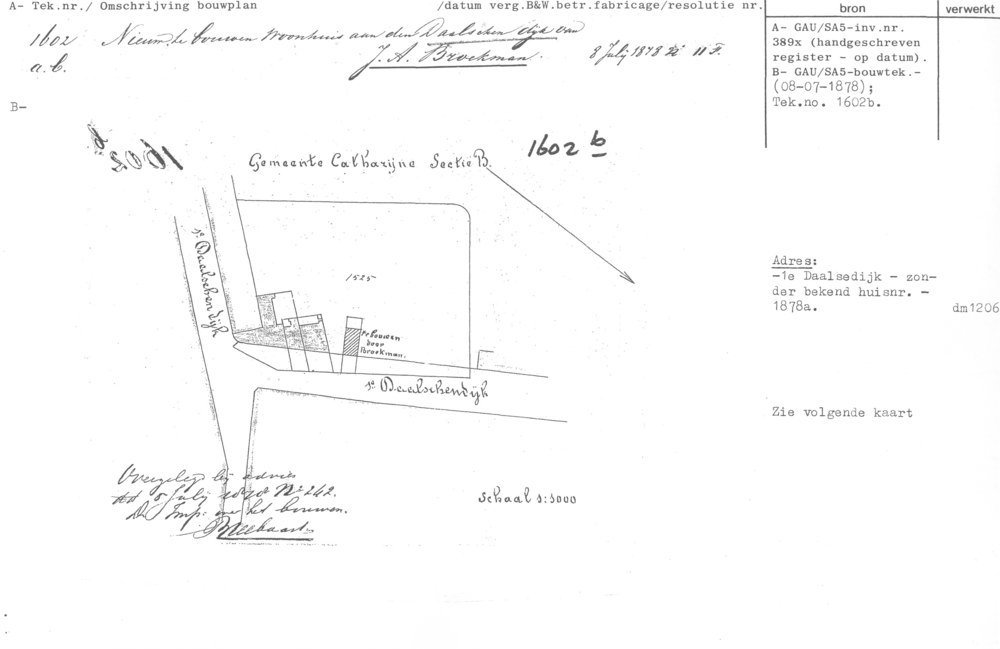 A- Tek.nr./ Omschrijving bouwplan /datum verg.B&W.betr.fabricage/resolutie nr.
bron
verwerkt
1602 Nieuw te bouwen woonhuis aan den Daalschen dijk van
a.b. J. A. Broekman. 8 July 1878 11 F.
A- GAU/SA5-inv.nr.
389x (handgeschreven
register - op datum).
B- GAU/SA5-bouwtek.-
(08-07-1878);
Tek.no. 1602b.
B-
1602
1602 b
Gemeente Catharijne Sectie B.
1e Daalschendijk
1525
te bouwen
door
Broekman.
1e Daalschendijk
Adres:
-1e Daalsedijk - zon-
der bekend huisnr. -
1878a.
dm1206
Zie volgende kaart
Schaal 1:1000
Overgelegd bij advies
July No 242.
het bouwen.